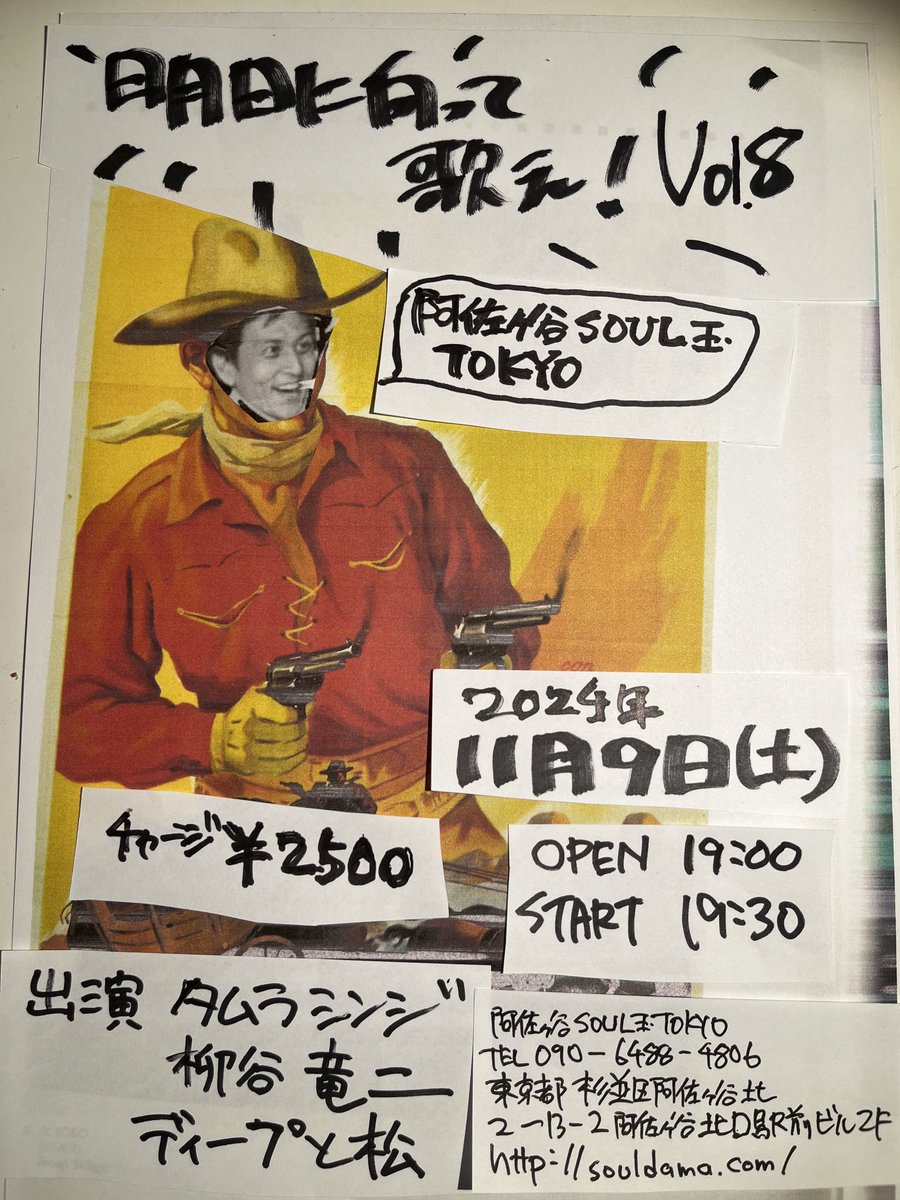 明日に向って
歌え! Vol.8
阿佐ヶ谷SOUL玉
TOKYO
con
2024年
11月9日(土)
チャージ ¥2500
OPEN 19:00
START 19:30
出演 タムラシンジ
柳谷 竜二
ディープと松
阿佐ヶ谷SOUL玉TOKYO
TEL 090-6488-4806
東京都 杉並区阿佐ヶ谷北
2-13-2 阿佐ヶ谷北口駅前ビル2F
http://souldama.com/